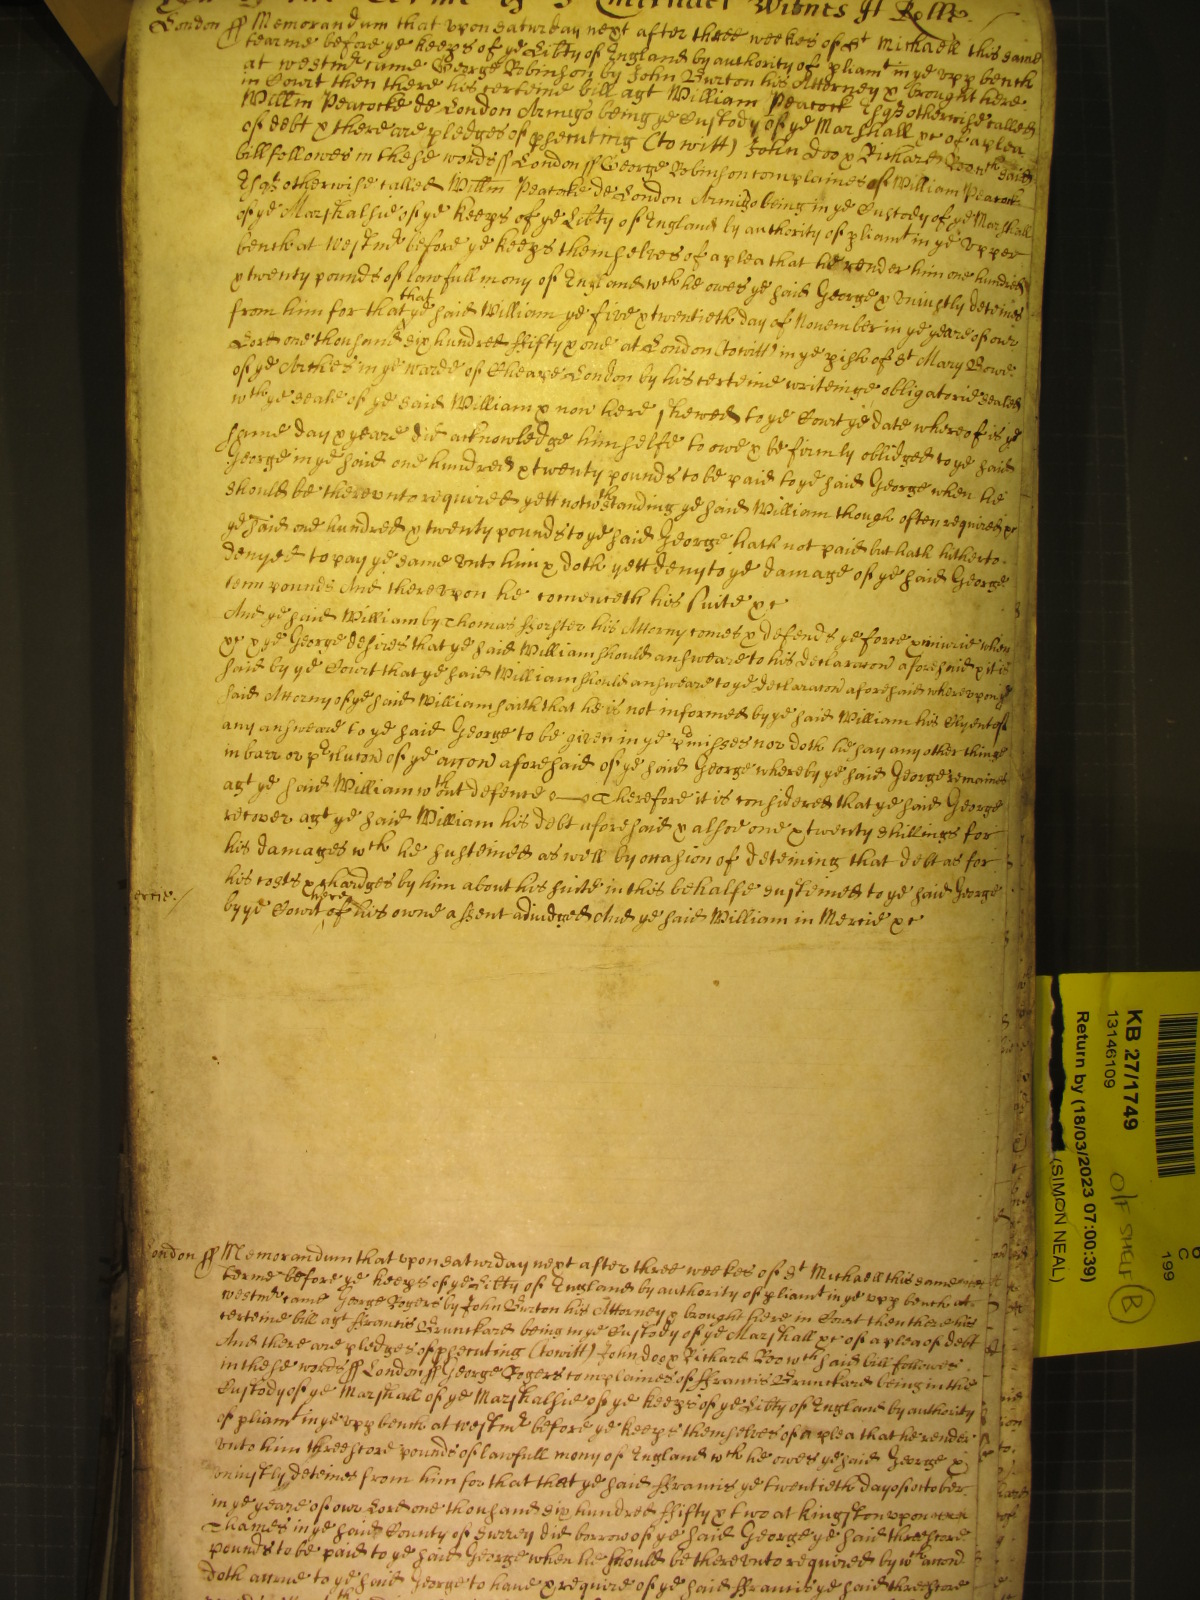 Witnes H Rolle
London ss Memorandum that vpon Saturday next after three weekes of St Michaell this same
tearme before ye keeps of ye Libty of England by authority of pliamt in ye vpp bench
at westmr came George Robinson by John Burton his Attorney & brought here
in Court then there his certeine bill agt William Peacock Esqr otherwise called
Willm Peacocke de London Armigo being in ye Custody of ye Marshall &c of a plea
of debt & there are pledges of psecuting (to witt) John Doo & Richard Roo wch said
bill followes in these words ss London ss George Robinson complaines of William Peacock
Esqr otherwise called Willm Peacocke de London Armigo being in ye Custody of ye Marshall
of ye Marshalsie of ye keeps of ye Libty of England by authority of pliamt in ye vpper
bench at Westmr before ye keeps themselves of a plea that he render him one hundred
& twenty pounds of lawfull mony of England wch he owes ye said George & vniustly deteines
from him for that that ye said William ye five & twentieth day of November in ye yeare of our
Lord one thousand six hundred ffifty & one at London (to witt) in ye pish of St Mary Bowe
of ye Arches in ye warde of Cheape London by his certeine writeinge obligatorie sealed
wth ye seale of ye said William & now here shewed to ye Court ye date whereof is ye
same day & yeare did acknowledge himselfe to owe & be firmly obliged to ye said
George in ye said one hundred & twenty pounds to be paid to ye said George when he
should be therevnto required yett notwthstanding ye said William though often required &c
ye said one hundred & twenty pounds to ye said George hath not paid but hath hitherto
denyed to pay ye same vnto him & doth yett deny to ye damage of ye said George
tenn pounds And therevpon he comenceth his suite &c
And ye said William by Thomas fforster his Attorny comes & defends ye force & iniurie when
&c & ye George desires that ye said William should answeare to his declaracon aforesaid & it is
said by ye Court that ye said William should answeare to ye declaracon aforesaid wherevpon ye
said Attorny of ye said William saith that he is not informed by ye said William his Clyent of
any answeare to ye said George to be given in ye pmisses nor doth he say any other thinge
in barr or pclusion of ye accon aforesaid of ye said George whereby ye said George remaines
agt ye said William wthout defence Therefore it is considered that ye said George
recover agt ye said William his debt aforesaid & alsoe one & twenty shillings for
his damages wch he susteined as well by occasion of deteining that debt as for
ercie / his costs & chardges by him about his suite in this behalfe susteined to ye said George
by ye Court here of his owne assent adiudged And ye said William in Mercie &c
London ss Memorandum that vpon Saturday next after three weekes of St Michaell this same
terme before ye keeps of ye Libty of England by authority of pliamt in ye vpp bench at
westmr came George Rogers by John Burton his Attorney & brought here in Court then there his
certeine bill agt ffrancis Brunckard being in ye Custody of ye Marshall &c of a plea of debt
And there are pledges of psecuting (to witt) John doo & Richard Roo wch said bill followes
in these words ss London ss George Rogers complaines of ffrancis Brunckard being in the
Custody of ye Marshall of ye Marshalsie of ye keeps of ye Libty of England by authority
of pliamt in ye vpp bench at westmr before ye keeps themselves of a plea that he render
vnto him threescore pounds of lawfull mony of England wch he owes ye said George &
vniustly deteines from him for that that ye said ffrancis ye twentieth day of october
in ye yeare of our Lord one thousand six hundred ffifty & two at kingston vpon
Thames in ye said County of Surrey did borrow of ye said George ye said threescore
pounds to be paid to ye said George when he should be therevnto required by wch accon
doth accrue to ye said George to have & require of ye said ffrancis ye said threescore
KB 27/1749
13146109
Return by (18/03/2023 07:00:39)
(SIMON NEAL)
O/F SHELF
B
C
199